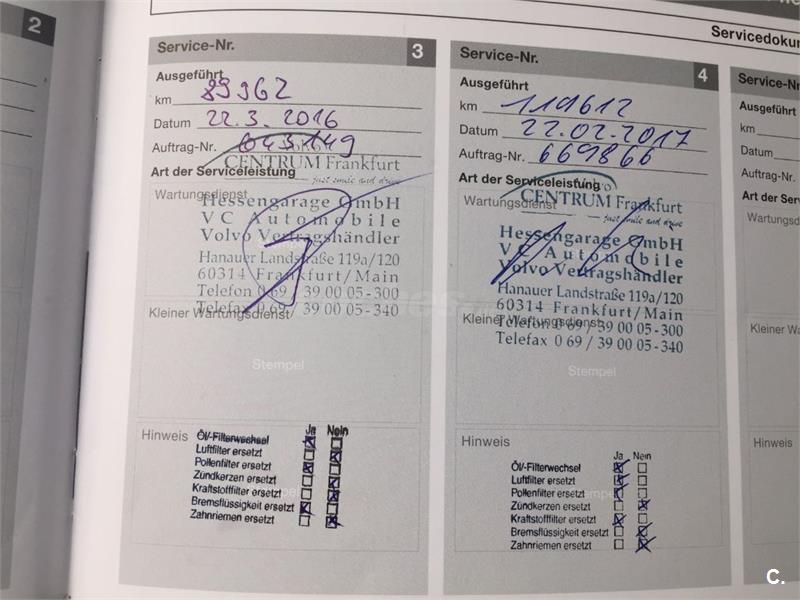 2
Servicedokum
Service-Nr. 3
Ausgeführt
km 89962
Datum 22.3.2016
Auftrag-Nr. 643149
Art der Serviceleistung
CENTRUM Frankfurt
just smile and drive
Wartungsdienst
Hessengarage GmbH
VC Automobile
Volvo Vertragshändler
Hanauer Landstraße 119a/120
60314 Frankfurt/Main
Telefon 0 69 / 39 00 05 - 300
Telefax 0 69 / 39 00 05 - 340
Kleiner Wartungsdienst
Stempel
Hinweis
Ja Nein
Öl/-Filterwechsel
Luftfilter ersetzt
Pollenfilter ersetzt
Zündkerzen ersetzt
Kraftstofffilter ersetzt
Bremsflüssigkeit ersetzt
Zahnriemen ersetzt
Service-Nr. 4
Ausgeführt
km 119612
Datum 22.02.2017
Auftrag-Nr. 669866
Art der Serviceleistung
CENTRUM Frankfurt
just smile and drive
Wartungsdienst
Hessengarage GmbH
VC Automobile
Volvo Vertragshändler
Hanauer Landstraße 119a/120
60314 Frankfurt/Main
Kleiner Wartungsdienst
Telefon 0 69 / 39 00 05 - 300
Telefax 0 69 / 39 00 05 - 340
Stempel
Hinweis
Ja Nein
Öl/-Filterwechsel
Luftfilter ersetzt
Pollenfilter ersetzt
Zündkerzen ersetzt
Kraftstofffilter ersetzt
Bremsflüssigkeit ersetzt
Zahnriemen ersetzt
Service-Nr
Ausgeführt
km
Datum
Auftrag-Nr.
Art der Serv
Wartungsd
Kleiner W
Hinweis
C.